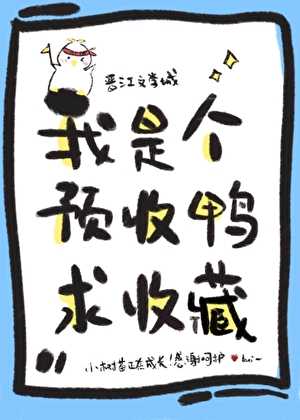 晋江文学城
我是个
预收鸭
求收藏
小树苗正在成长!感谢呵护